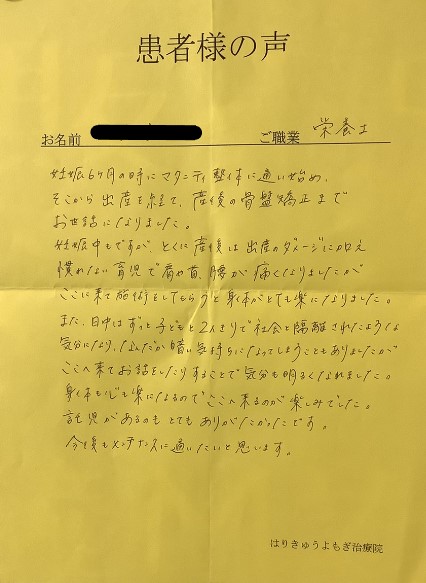 患者様の声
お名前 ご職業 栄養士
妊娠6ヶ月の時にマタニティ整体に通い始め、
そこから出産を経て、産後の骨盤矯正まで
お世話になりました。
妊娠中もですが、とくに産後は出産のダメージに加え
慣れない育児で肩や首、腰が痛くなりましたが
ここに来て施術をしてもらうと身体がとても楽になりました。
また、日中はずっと子どもと2人きりで社会と隔離されたような
気分になり、なんだか暗い気持ちになってしまうこともありましたが
ここへ来てお話をしたりすることで気分も明るくなれました。
身体も心も楽になるのでここへ来るのが楽しみでした。
託児があるのもとてもありがたかったです。
今後もメンテナンスに通いたいと思います。
はりきゅうよもぎ治療院